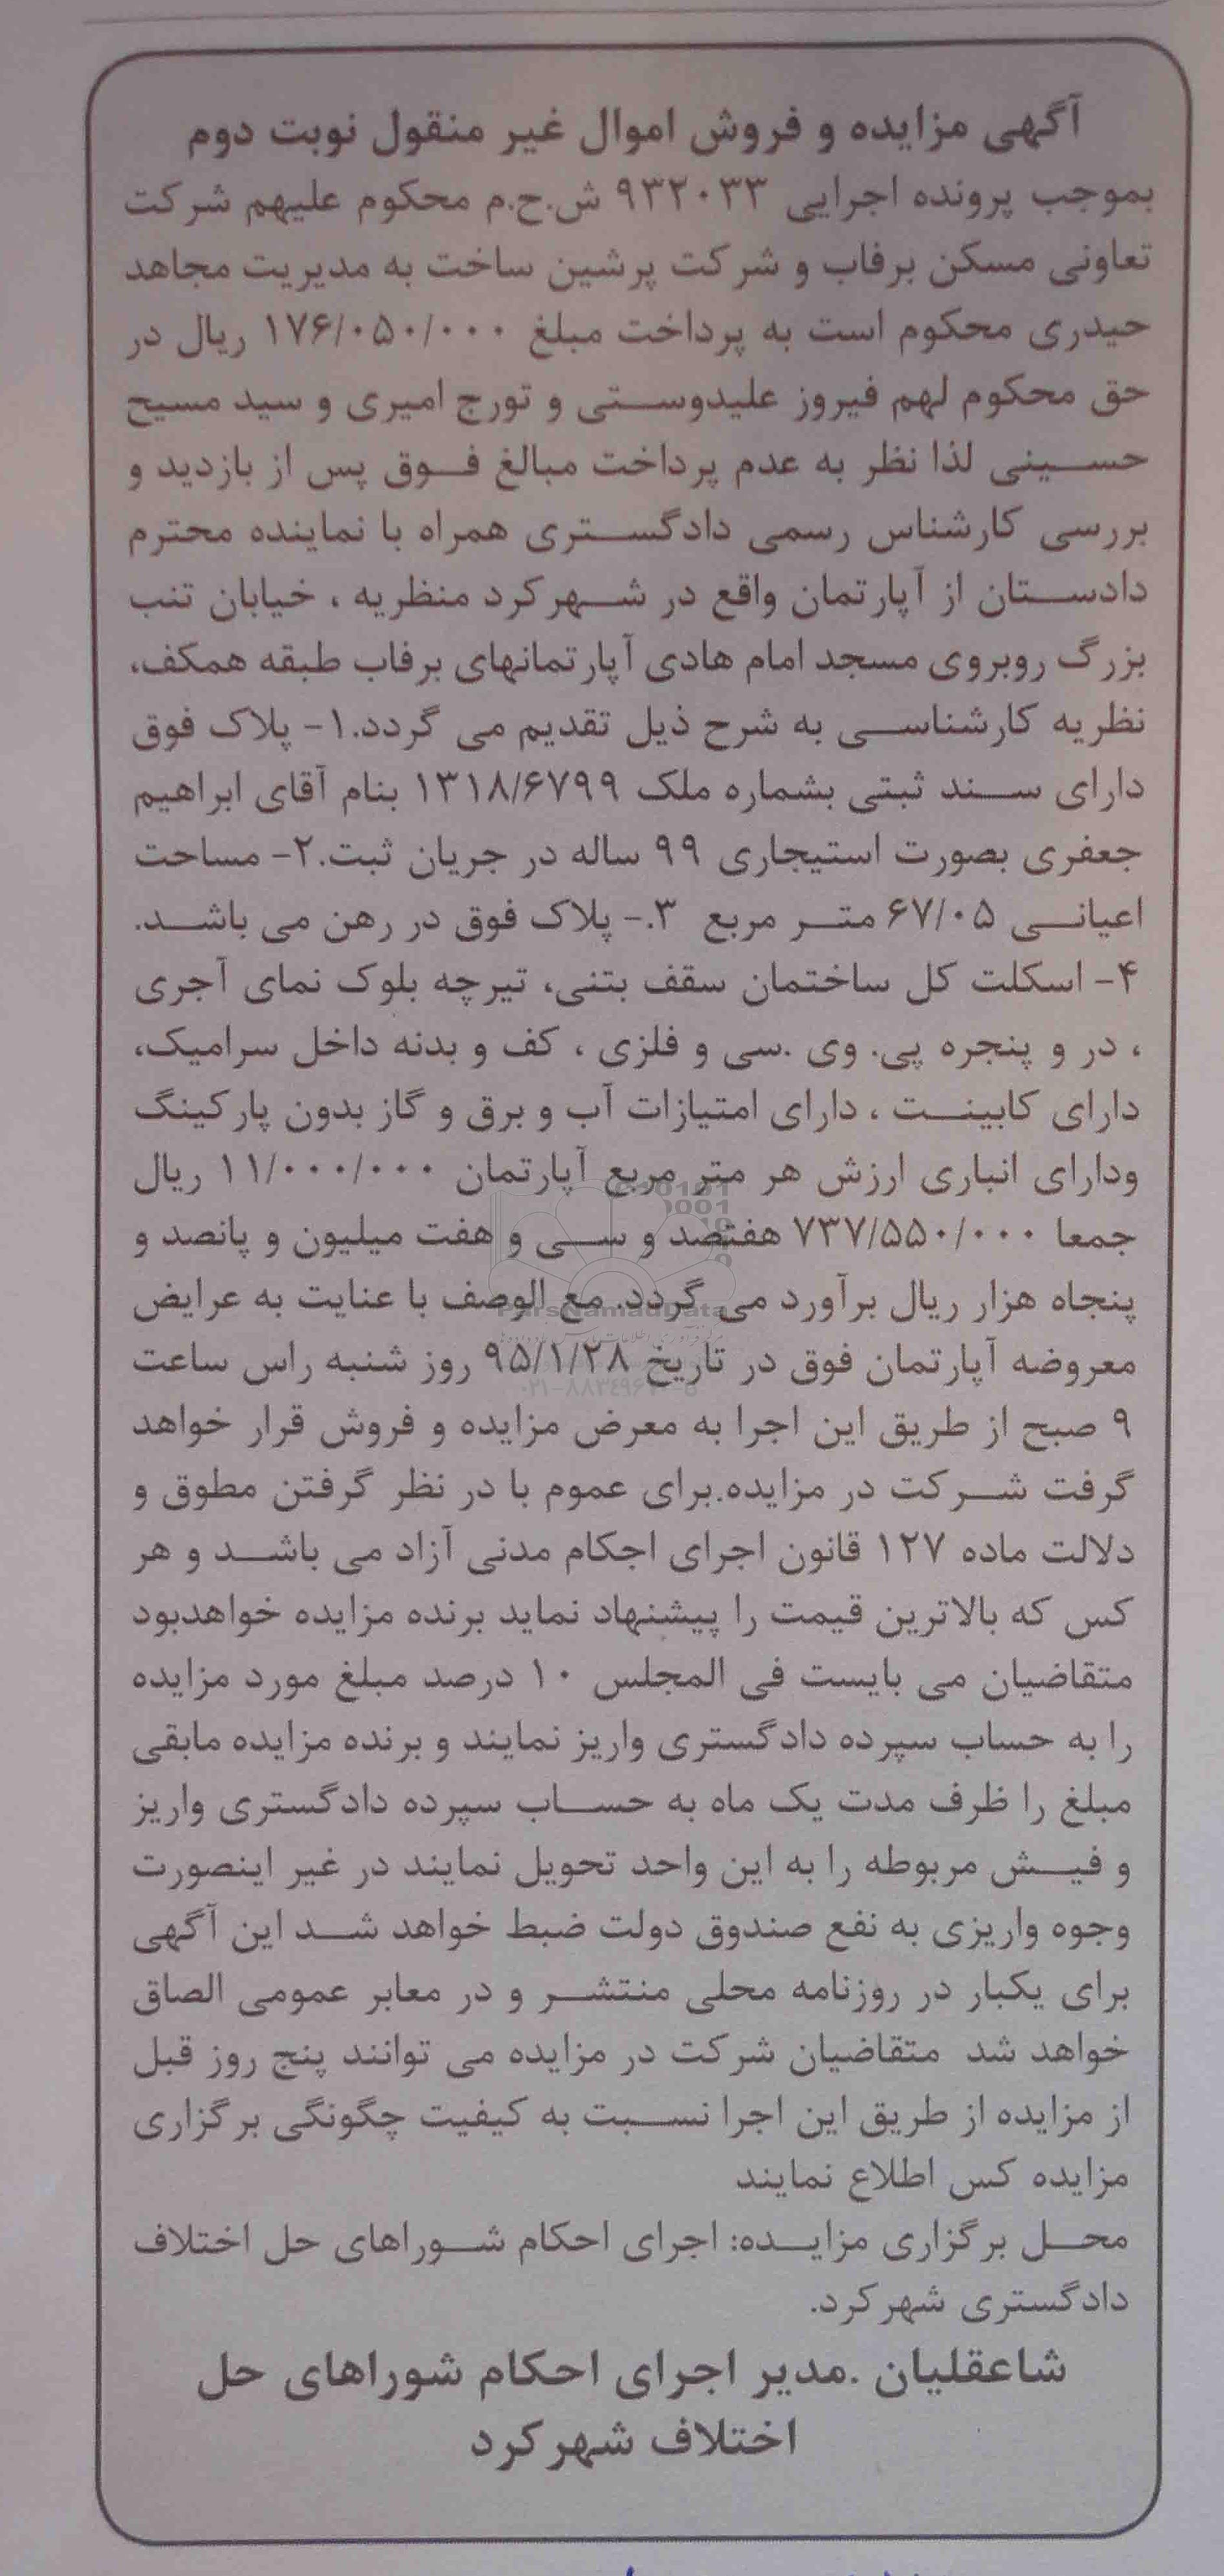 آگهی مزایده و فروش اموال غیر منقول نوبت دوم
بموجب پرونده اجرایی ۹۳۲۰۳۳ ش.ح.م محکوم علیهم شرکت
تعاونی مسکن برفاب و شرکت پرشین ساخت به مدیریت مجاهد
حیدری محکوم است به پرداخت مبلغ ۱۷۶/۰۵۰/۰۰۰ ریال در
حق محکوم لهم فیروز علیدوستی و تورج امیری و سید مسیح
حسینی لذا نظر به عدم پرداخت مبالغ فوق پس از بازدید و
بررسی کارشناس رسمی دادگستری همراه با نماینده محترم
دادستان از آپارتمان واقع در شهرکرد منظریه ، خیابان تنب
بزرگ روبروی مسجد امام هادی آپارتمانهای برفاب طبقه همکف،
نظریه کارشناسی به شرح ذیل تقدیم می گردد.۱- پلاک فوق
دارای سند ثبتی بشماره ملک ۱۳۱۸/۶۷۹۹ بنام آقای ابراهیم
جعفری بصورت استیجاری ۹۹ ساله در جریان ثبت.۲- مساحت
اعیانی ۶۷/۰۵ متر مربع ۳.- پلاک فوق در رهن می باشد.
۴- اسکلت کل ساختمان سقف بتنی، تیرچه بلوک نمای آجری
، در و پنجره پی. وی .سی و فلزی ، کف و بدنه داخل سرامیک،
دارای کابینت ، دارای امتیازات آب و برق و گاز بدون پارکینگ
ودارای انباری ارزش هر متر مربع آپارتمان ۱۱/۰۰۰/۰۰۰ ریال
جمعا ۷۳۷/۵۵۰/۰۰۰ هفتصد و سی و هفت میلیون و پانصد و
پنجاه هزار ریال برآورد می گردد. مع الوصف با عنایت به عرایض
ParsNamadData
معروضه آپارتمان فوق در تاریخ ۹۵/۱/۲۸ روز شنبه راس ساعت
۹ صبح از طریق این اجرا به معرض مزایده و فروش قرار خواهد
گرفت شرکت در مزایده.برای عموم با در نظر گرفتن مطوق و
دلالت ماده ۱۲۷ قانون اجرای اجکام مدنی آزاد می باشد و هر
کس که بالاترین قیمت را پیشنهاد نماید برنده مزایده خواهدبود
متقاضیان می بایست فی المجلس ۱۰ درصد مبلغ مورد مزایده
را به حساب سپرده دادگستری واریز نمایند و برنده مزایده مابقی
مبلغ را ظرف مدت یک ماه به حساب سپرده دادگستری واریز
و فیش مربوطه را به این واحد تحویل نمایند در غیر اینصورت
وجوه واریزی به نفع صندوق دولت ضبط خواهد شد این آگهی
برای یکبار در روزنامه محلی منتشر و در معابر عمومی الصاق
خواهد شد متقاضیان شرکت در مزایده می توانند پنج روز قبل
از مزایده از طریق این اجرا نسبت به کیفیت چگونگی برگزاری
مزایده کس اطلاع نمایند
محل برگزاری مزایده: اجرای احکام شوراهای حل اختلاف
دادگستری شهرکرد.
شاعقلیان .مدیر اجرای احکام شوراهای حل
اختلاف شهرکرد